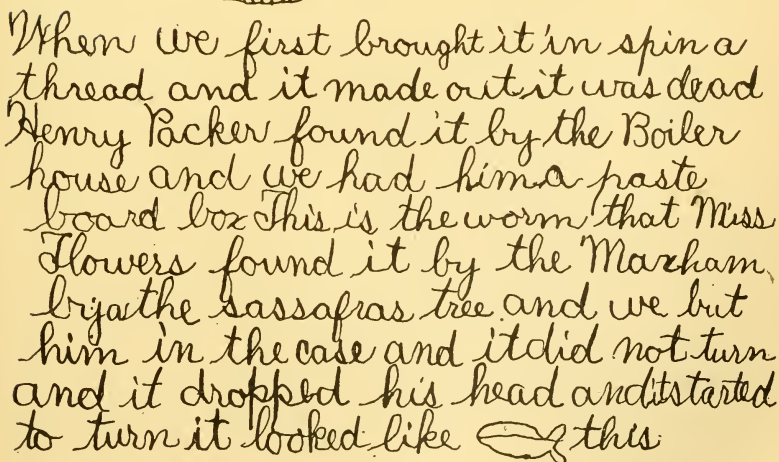 When we first brought it in spin a
thread and it made out it was dead
Henry Packer found it by the Boiler
house and we had him a paste
board box This is the worm that Miss
Flowers found it by the Marxham
the sassafras tree and we but
him in the case and it did not turn
and it dropped his head and it started
to turn it looked like this